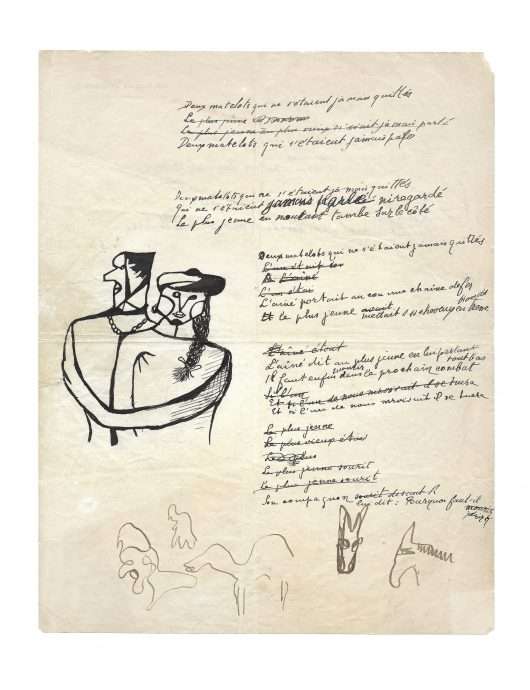 Deux matelots qui ne s'étaient jamais quittés
Le plus jeune
Le plus jeune au plus vieux n'avait jamais parlé
Deux matelots qui s'étaient jamais
Deux matelots qui ne s'étaient jamais quittés
Qui ne s'étaient jamais parlé ni regardé
Le plus jeune en montant tombe sur le côté
Deux matelots qui ne s'étaient jamais quittés
L'un était
L'aîné
L'un était
L'aîné portait au cou une chaîne de fer
Et le plus jeune avait mettait ses cheveux en
L'aîné était
L'aîné dit au plus jeune en lui parlant tout bas
Il faut enfin dans le prochain combat
Et si l'un de nous mourait il se tuera
Et si l'un de nous il se tuera
Le plus jeune
Le plus vieux était
Le plus
Le plus jeune sourit
Le plus jeune sourit
Son compagnon sourit
lui dit : Pourquoi faut-il